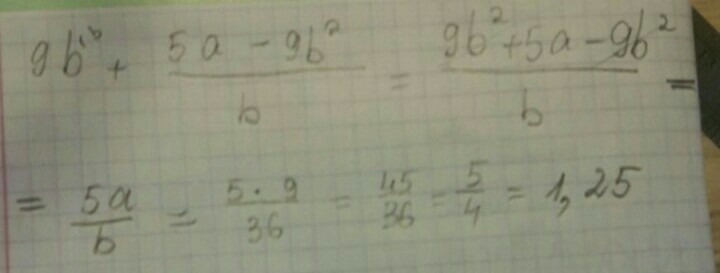 9b^b + (5a - 9b²)/b = (9b² + 5a - 9b²)/b =
= 5a/b = (5 · 9)/36 = 45/36 = 5/4 = 1,25